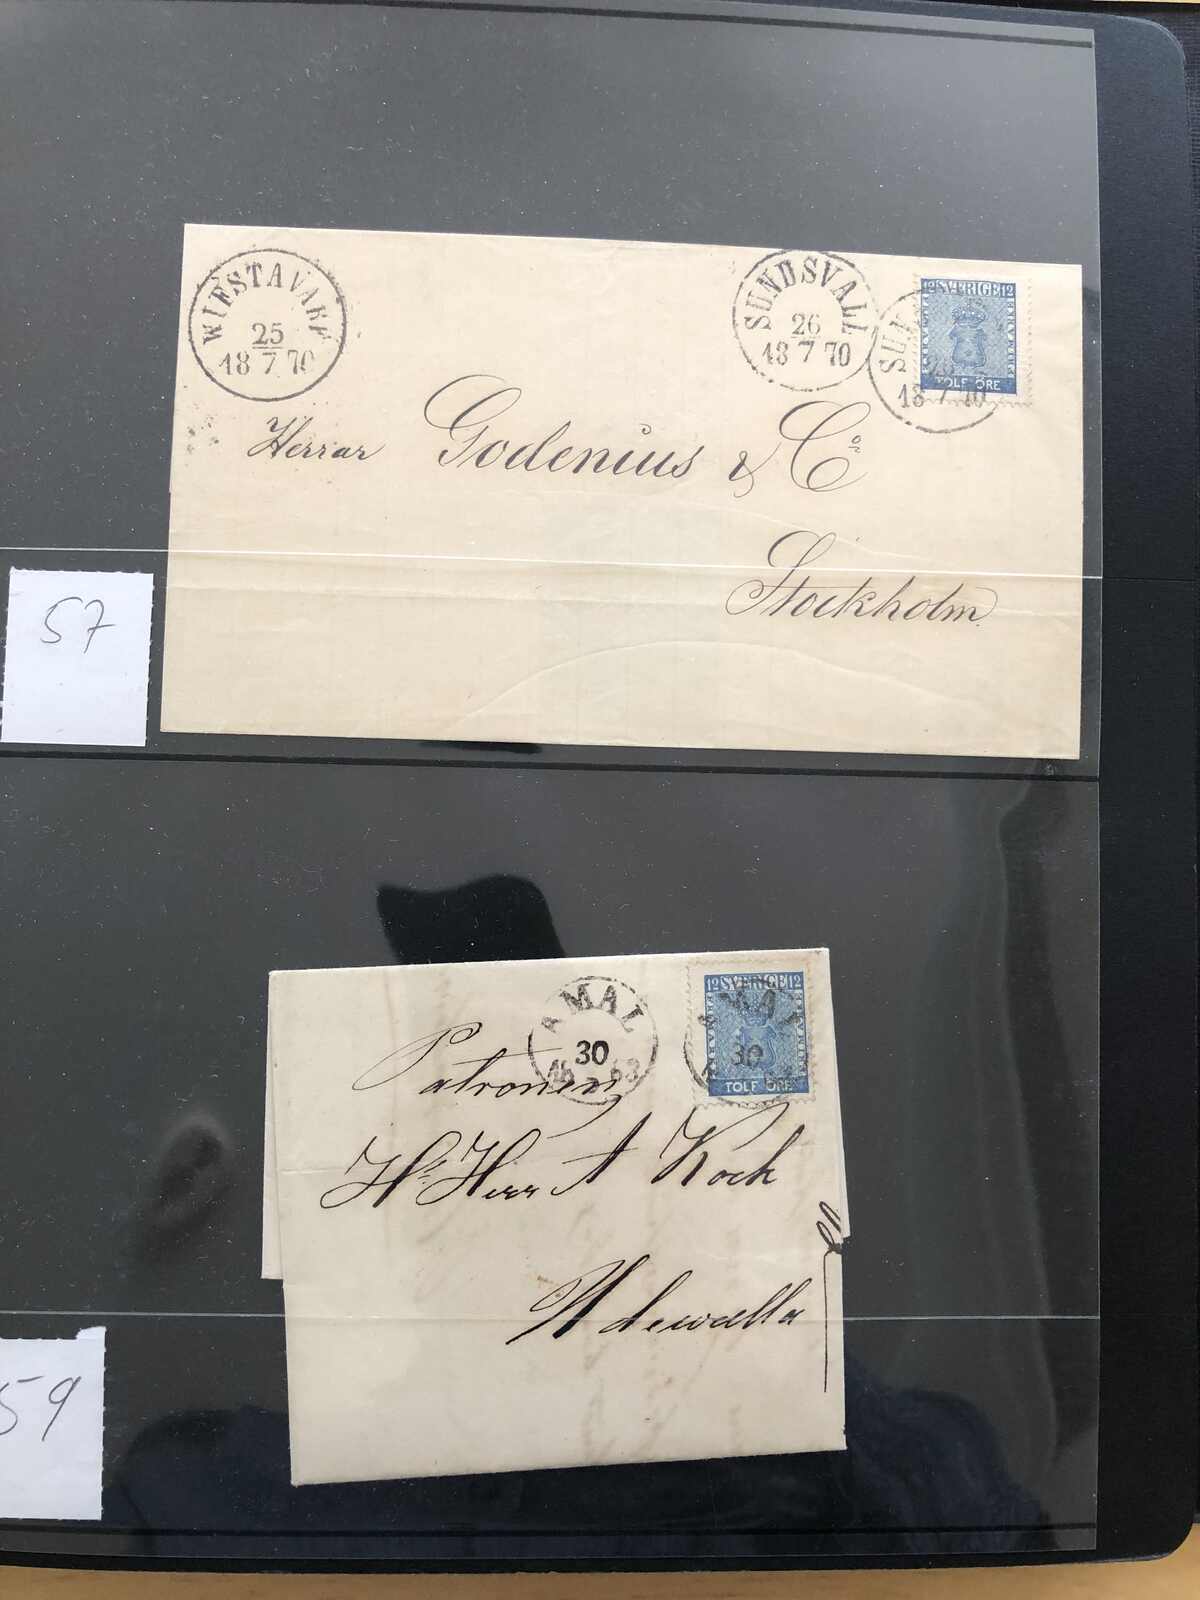 WIFSTAVARF
25
18 7 70
SUNDSVALL
26
18 7 70
12 SVERIGE 12
TOLF ÖRE
18 7 70
Herrar Godenius & Co
Stockholm
57
AMAL
30
63
12 SVERIGE 12
30
TOLF ÖRE
Patronen
Hr Herr A Koch
Udewalla
59